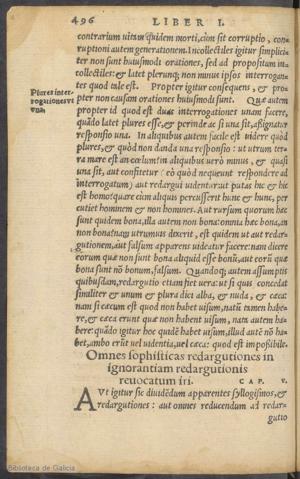 496 LIBER I.
contrarium uitam quidem morti, cùm sit corruptio, cor-
ruptioni autem generationem. Incollectiles igitur simplici-
ter non sunt huiusmodi orationes, sed ad propositum in-
collectiles: & latet plerunq; non minus ipsos interrogan-
tes quod tale est. Propter igitur consequens, & pro-
pter non causam orationes huiusmodi sunt. Quæ autem
Plures inter-
rogationes ut
una.
propter id quod est duas interrogationes unam facere,
quādo latet plures esse, & perinde ac si una sit, assignatur
responsio una. In aliquibus autem facile est uidere quòd
plures, & quòd non danda una responsio: ut utrum ter-
ra mare est an cœlum? in aliquibus uerò minus, & quasi
una sit, aut confitetur (eò quòd nequeunt respondere ad
interrogatum) aut redargui uidentur: ut putas hic & hic
est homo? quare cùm aliquis percusserit hunc & hunc, per
cutiet hominem & non homines. Aut rursum quorum hæc
sunt quidem bona, illa autem non bona: omnia hæc bona, an
non bona? nam utrumuis dixerit, est quidem ut aut redar-
gutionem, aut falsum apparens uideatur facere: nam dicere
eorum quæ non sunt bona aliquid esse bonū, aut eorū quæ
bona sunt nō bonum, falsum. Quandoq; autem assumptis
quibusdam, redargutio etiam fiet uera: ut si quis concedat
similiter & unum & plura dici alba, & nuda, & cæca:
nam si cæcum est quod non habet uisum, natū tamen habe-
re, & cæca erunt quæ non habent uisum, nata autem ha-
bere: quādo igitur hoc quidē habet uisum, illud autē nō ha-
bet, ambo erūt uel uidentia, uel cæca: quod est impossibile.
Omnes sophisticas redargutiones in
ignorantiam redargutionis
reuocatum iri. CAP. V.
AVt igitur sic diuidēdum apparentes syllogismos, &
redargutiones: aut omnes reducendum ad redar-
gutio
Biblioteca de Galicia